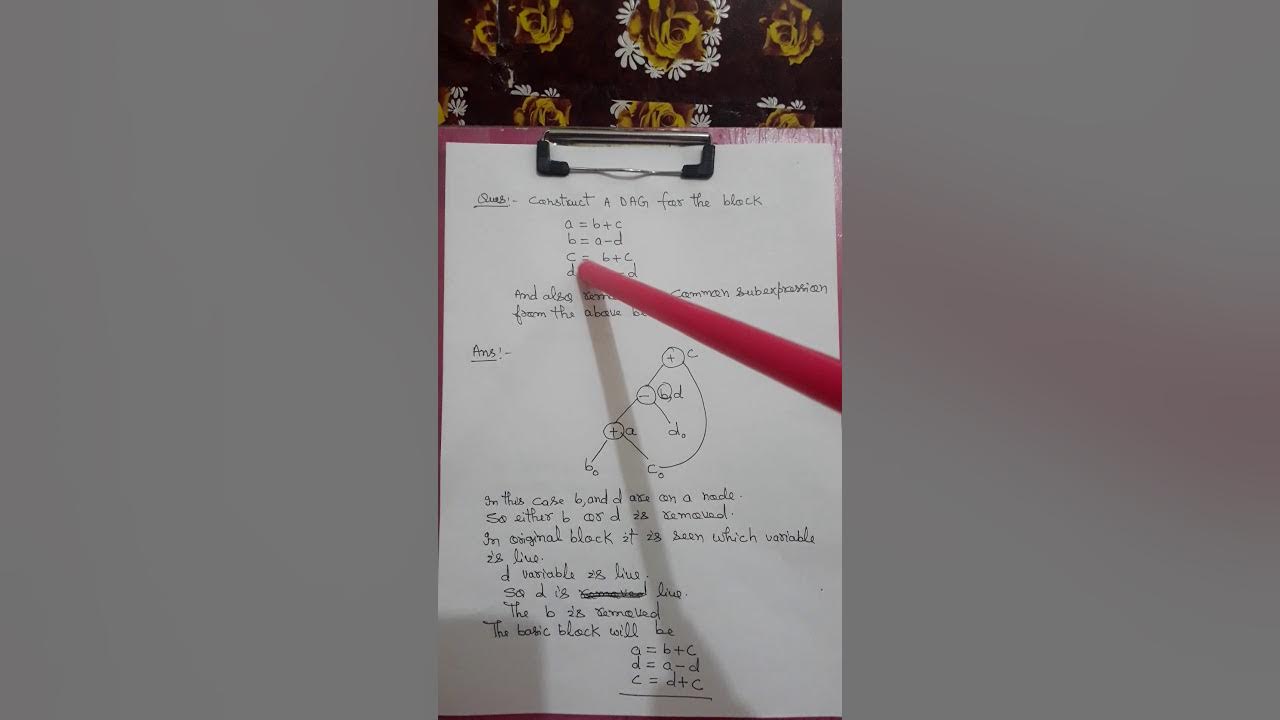 Ques:- Construct A DAG for the block
a = b+c
b = a-d
c = b+c
d -d
And also common subexpression
from the above
Ans:-
+ c
- b,d
+ a d₀
b₀ c₀
In this case b, and d are on a node.
So either b or d is removed.
In original block it is seen which variable
is live.
d variable is live.
So d is removed live.
The b is removed
The basic block will be
a = b+c
d = a-d
c = d+c